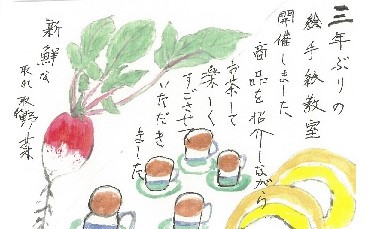 三年ぶりの
絵手紙教室
開催しました、
商品を紹介しながら
お茶して
楽しく
すごさせて
いただき
ました
新鮮な
取れ取れ野菜